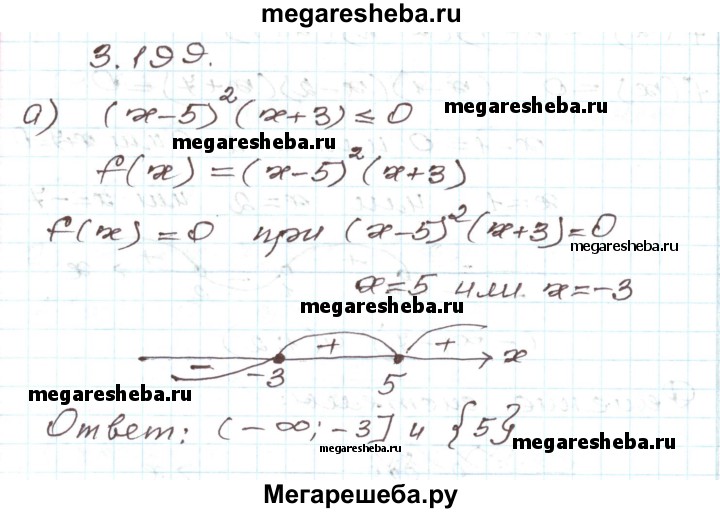 megaresheba.ru
3.199.
а) (x-5)²(x+3)≤0 megaresheba.ru
megaresheba.ru
f(x)=(x-5)²(x+3)
f(x)=0 при (x-5)²(x+3)=0
megaresheba.ru
x=5 или x=-3
megaresheba.ru
- -3 + 5 + x
megaresheba.ru
Ответ: (-∞;-3] и {5}
megaresheba.ru megaresheba.ru
Мегарешеба.ру